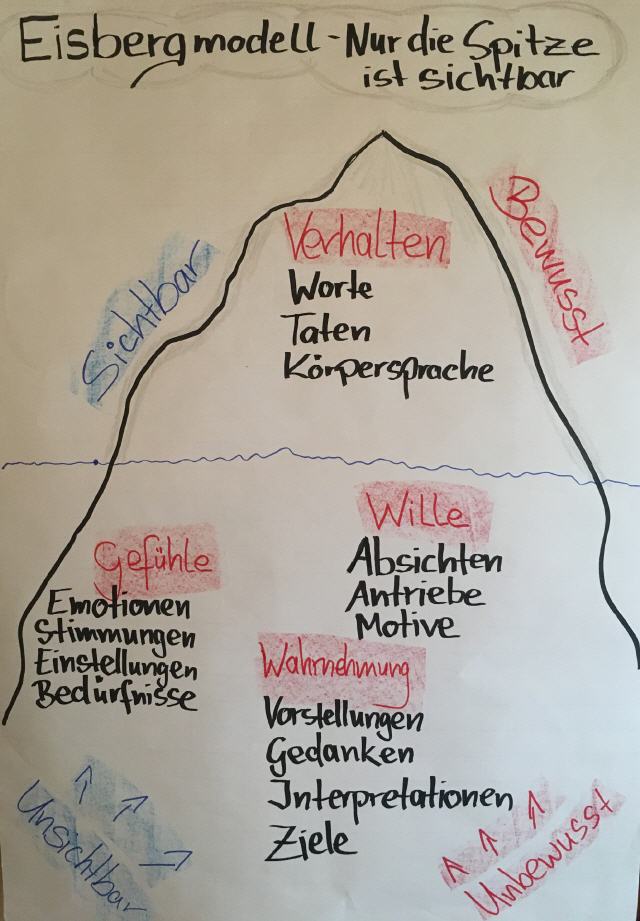 Eisbergmodell - Nur die Spitze
ist sichtbar
Sichtbar
Bewusst
Verhalten
Worte
Taten
Körpersprache
Gefühle
Emotionen
Stimmungen
Einstellungen
Bedürfnisse
Wille
Absichten
Antriebe
Motive
Wahrnehmung
Vorstellungen
Gedanken
Interpretationen
Ziele
Unsichtbar
Unbewusst